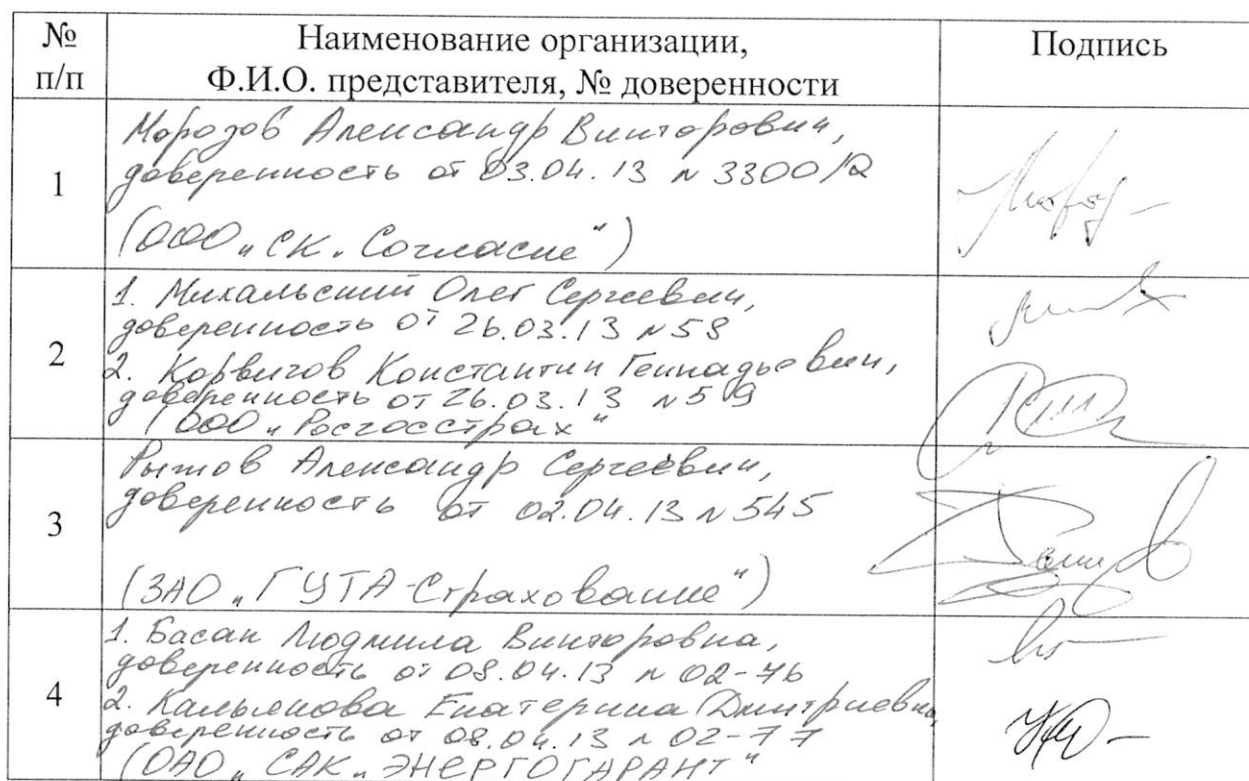 № п/п
Наименование организации,
Ф.И.О. представителя, № доверенности
Подпись
1
Морозов Александр Викторович,
доверенность от 03.04.13 № 3300/Д
(ООО „СК „Согласие")
2
1. Михальский Олег Сергеевич,
доверенность от 26.03.13 №58
2. Корвигов Константин Геннадьевич,
доверенность от 26.03.13 №59
(ООО „Росгосстрах"
3
Рыжов Александр Сергеевич,
доверенность от 02.04.13 №545
(ЗАО „ГУТА-Страхование")
4
1. Басан Людмила Викторовна,
доверенность от 08.04.13 № 02-76
2. Кальянова Екатерина Дмитриевна,
доверенность от 08.04.13 № 02-77
(ОАО „САК „ЭНЕРГОГАРАНТ"